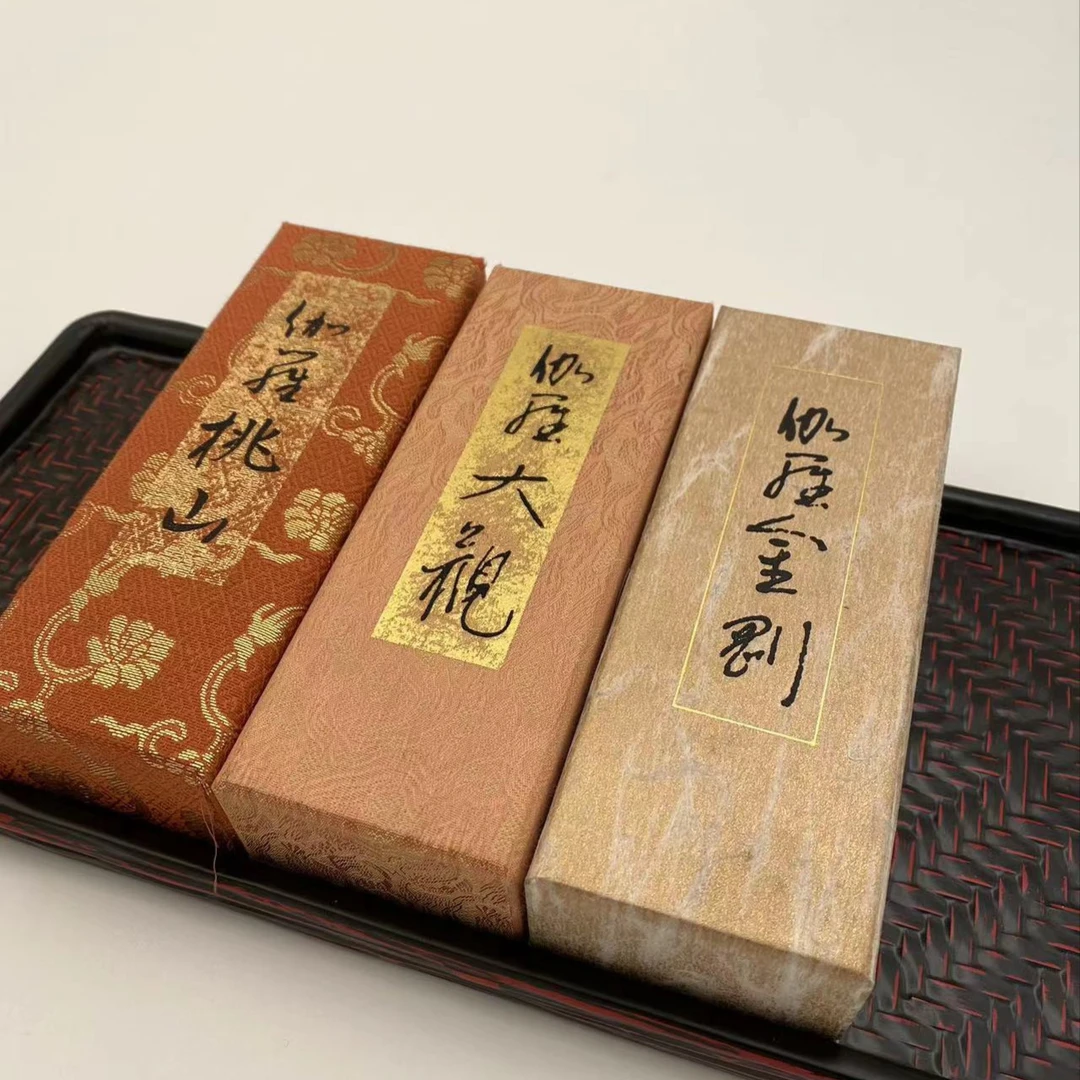 伽羅桃山
伽羅大観
伽羅金剛